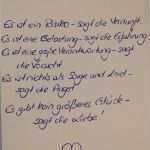 Es ist ein Risiko - sagt die Vernunft.
Es ist eine Belastung - sagt die Erfahrung
Es ist eine große Verantwortung - sagt
die Vorsicht
Es ist nichts als Sorge und Leid -
sagt die Angst
Es gibt kein größeres Glück -
sagt die Liebe!